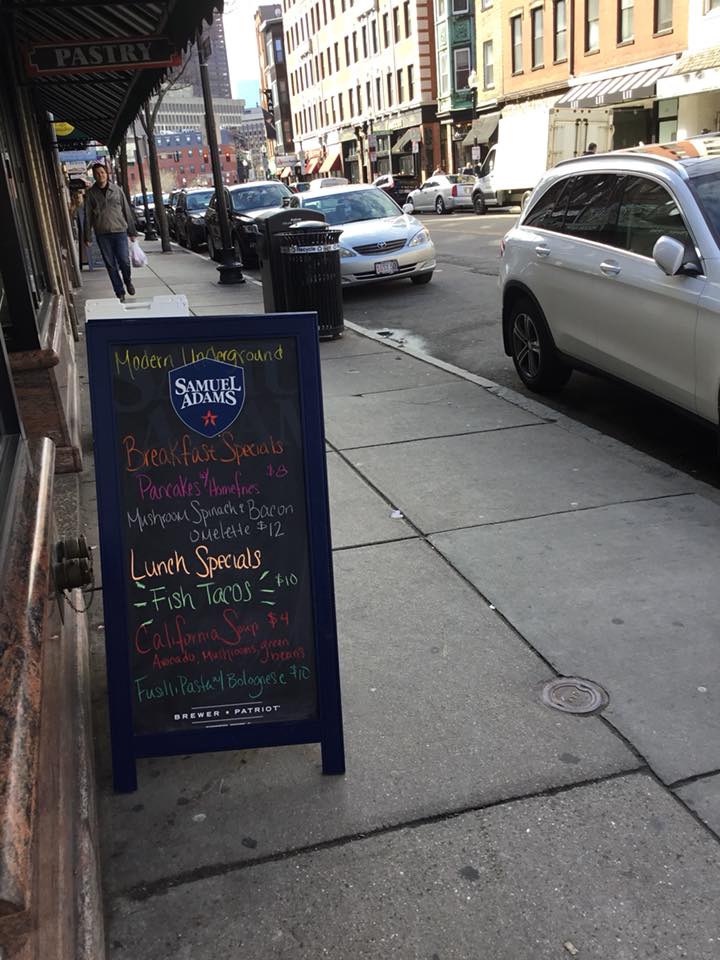 PASTRY
Modern Underground
SAMUEL
ADAMS
Breakfast Specials
Pancakes w/ Homefries $8
Mushroom Spinach & Bacon
Omelette $12
Lunch Specials
Fish Tacos $10
California Soup $4
Avocado, Mushrooms, green
beans
Fusilli Pasta w/ Bolognese $10
BREWER • PATRIOT